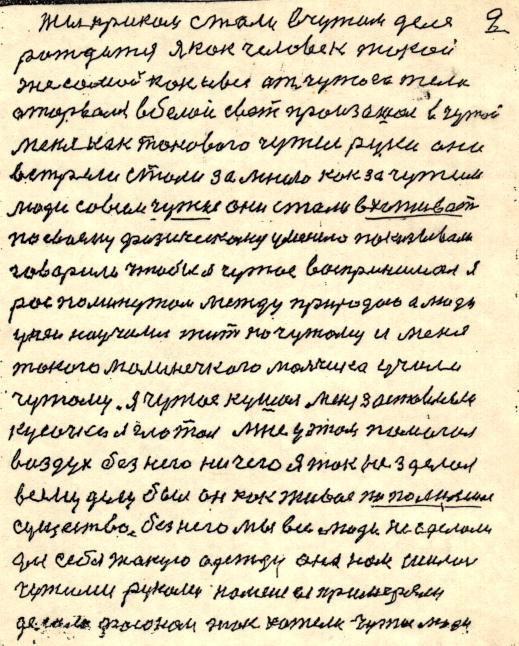 Жилриком стали в чужом деле
рождатся я как человек такой
же самой как и все от чужого тела
оторвали в белой свет произашол в чужой
меня как токового чужии руки они
встрели стали за мною как за чужим
люди совсем чужые они стали вхаживат
по своему физическому умению показывали
говорили чтобы я чужое воспринимал я
рос поминутом между природою а люди
учили научали жит по чужому и меня
такого малинечкого малчика учили
чужому. я чужое кушал меня заставляли
кусочки я глотал мне у этом помогал
воздух без него ничего я так не зделал
всему делу был он как живое пополнимое
существо. без него мы все люди не сделали
для себя такую одежду она нам шили
чужими руками на мене примеряли
делали фасоном так хотели чужие люди